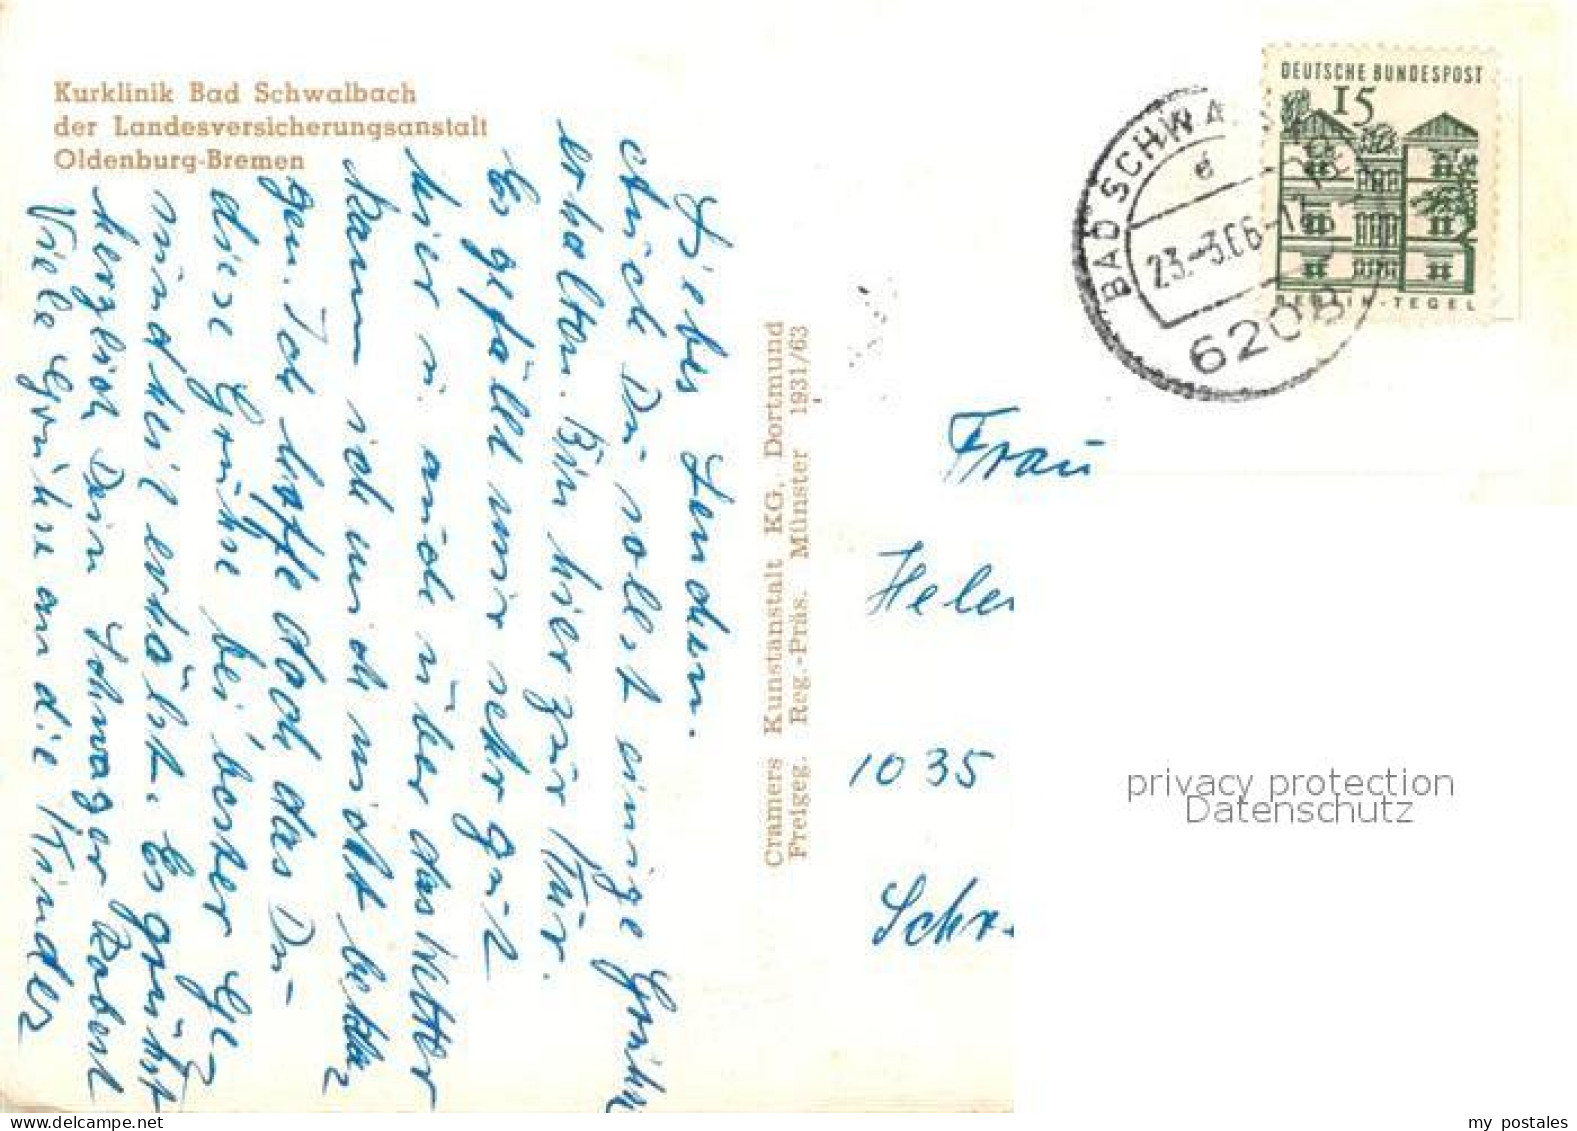 Kurklinik Bad Schwalbach
der Landesversicherungsanstalt
Oldenburg-Bremen
DEUTSCHE BUNDESPOST
15
BERLIN-TEGEL
BAD SCHWA
e
23.-3.66-
6208
Liebes Lenchen.
Auch Du sollst einige Grüße
erhalten. Bin hier zur Kur.
Es gefällt mir sehr gut
hier u. auch über das Wetter
kann ich mich nicht bekla
gen. Ich hoffe doch das Du
diese Grüße bei bester Ge
sundheit erhälst. Es grüßt
herzlich Dein Schwager
Viele Grüße an die Kinder
Cramers Kunstanstalt KG, Dortmund
Freigeg. Reg.-Präs. Münster 1931/63
Frau
Helen
1035
Schr.
privacy protection
Datenschutz
my postales